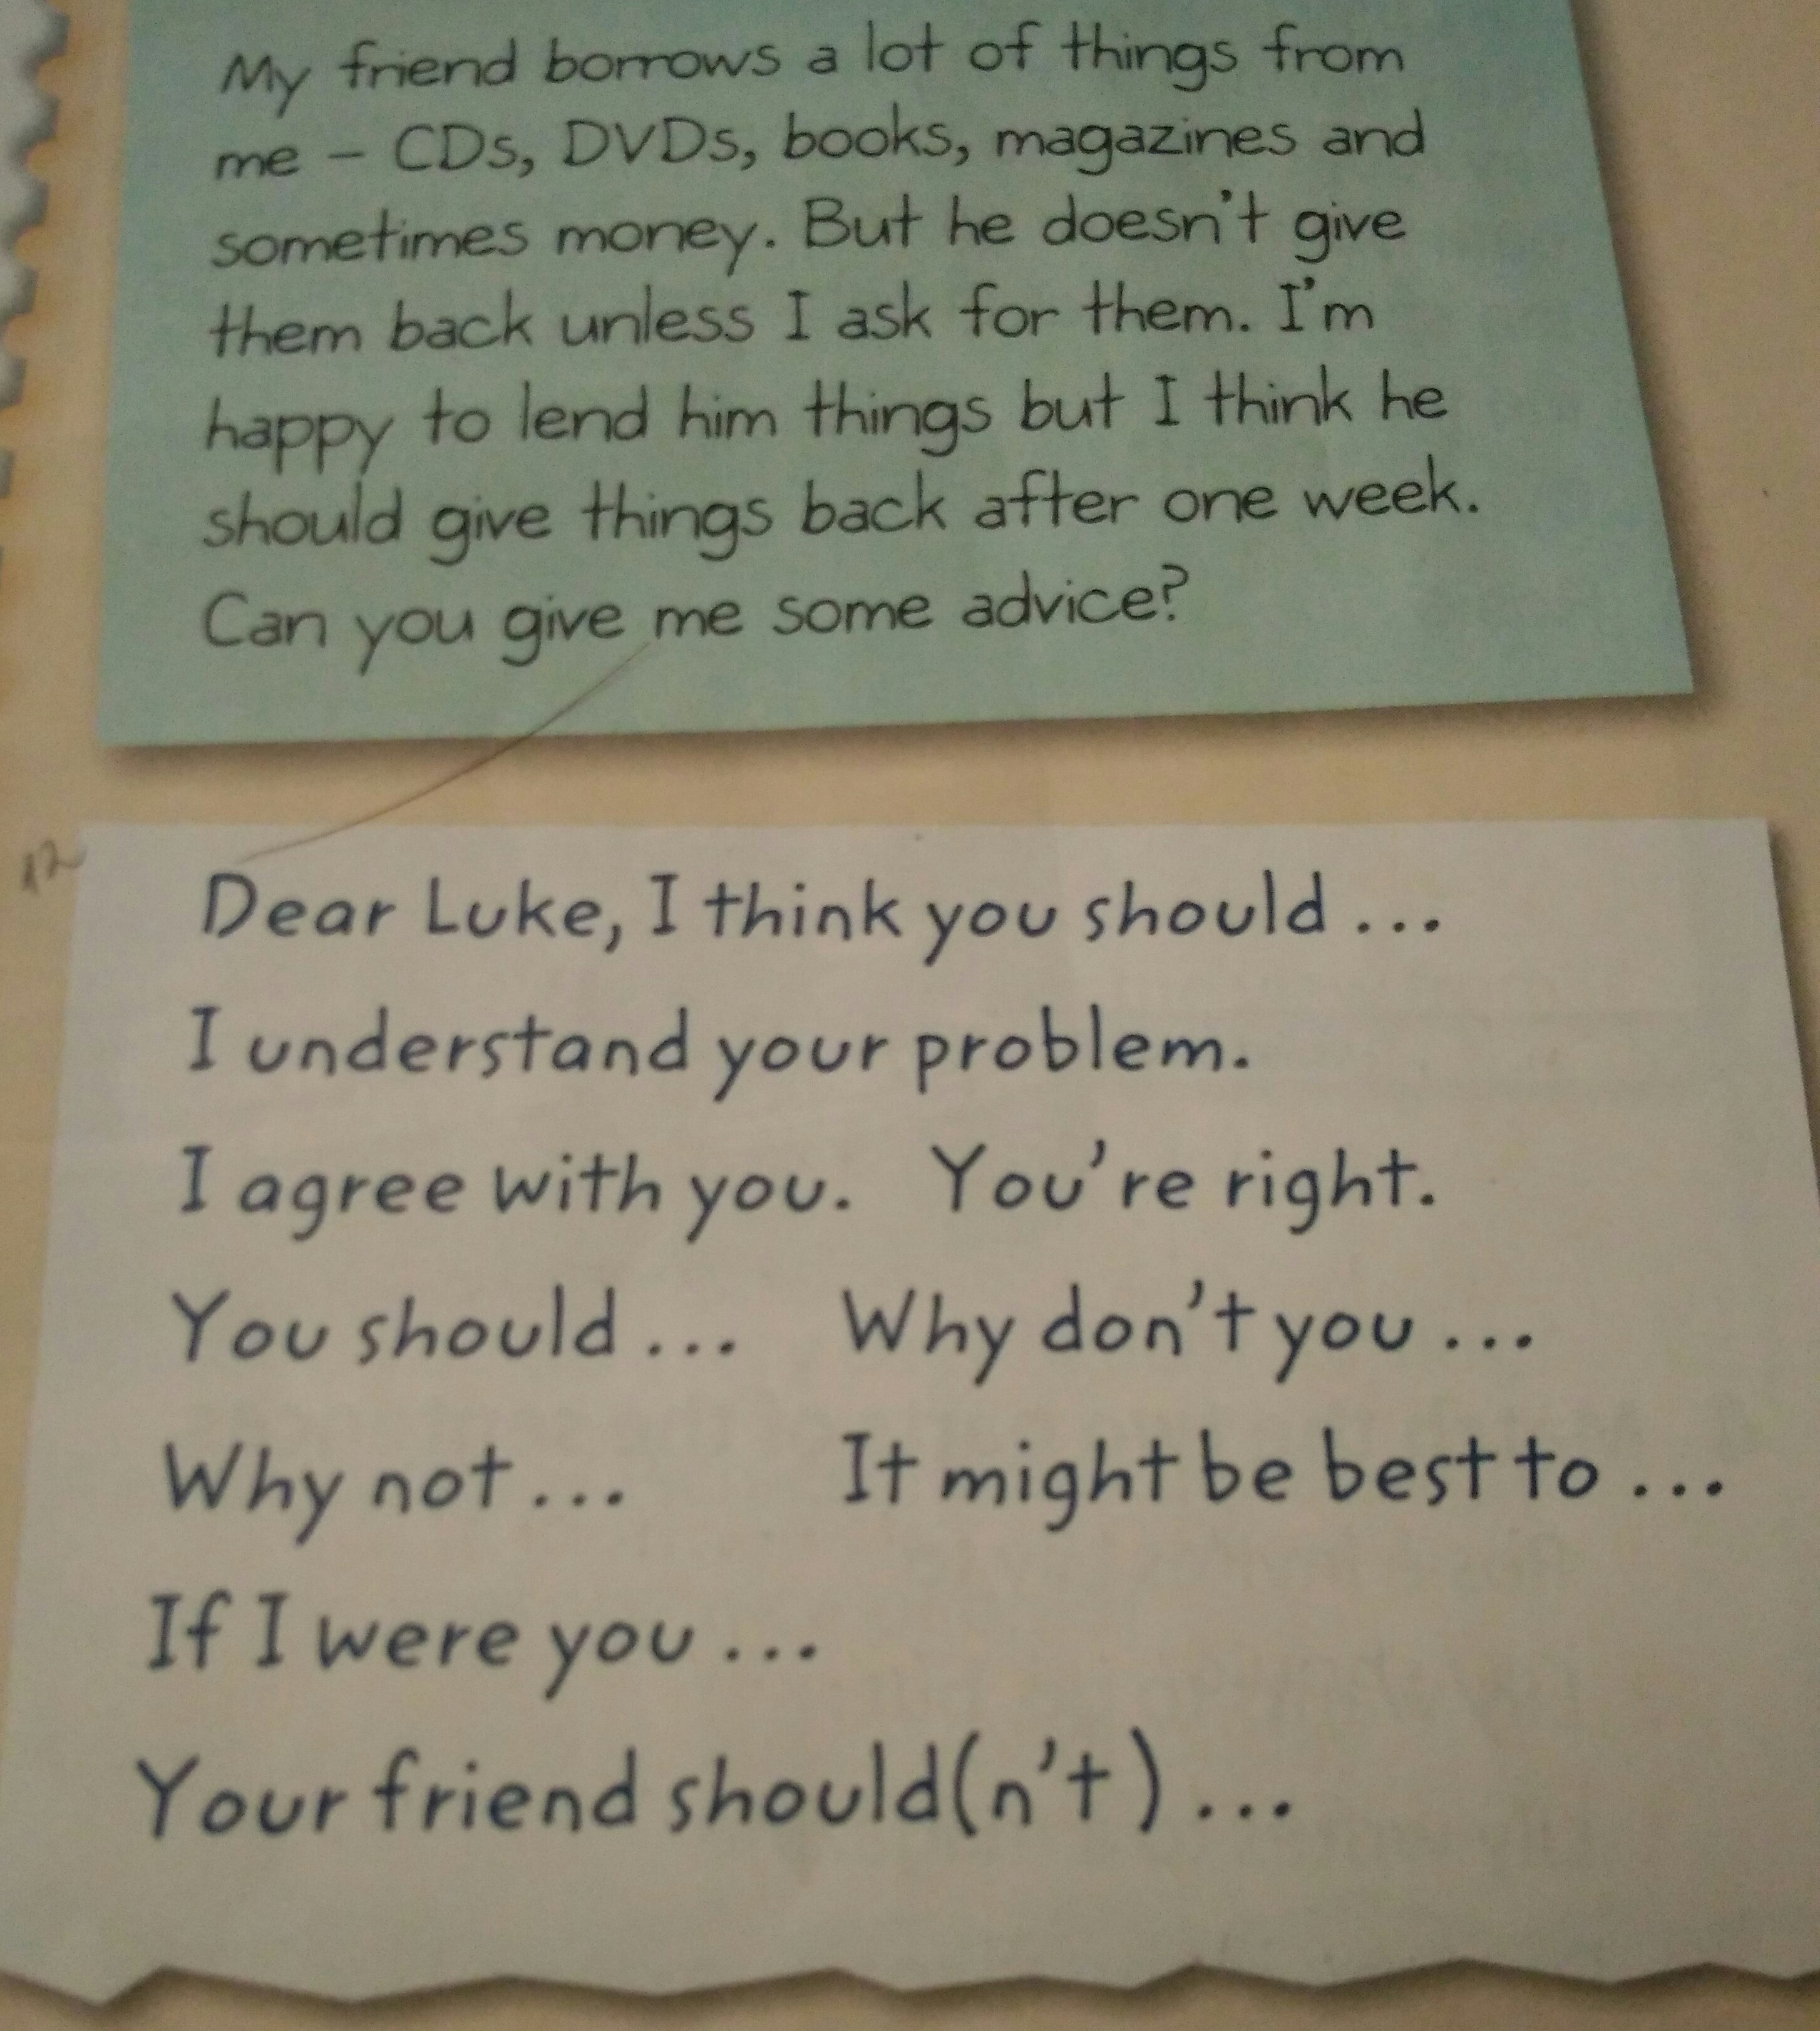 My friend borrows a lot of things from
me – CDs, DVDs, books, magazines and
sometimes money. But he doesn't give
them back unless I ask for them. I'm
happy to lend him things but I think he
should give things back after one week.
Can you give me some advice?
12
Dear Luke, I think you should ...
I understand your problem.
I agree with you. You're right.
You should ... Why don't you ...
Why not ... It might be best to ...
If I were you ...
Your friend should(n't) ...